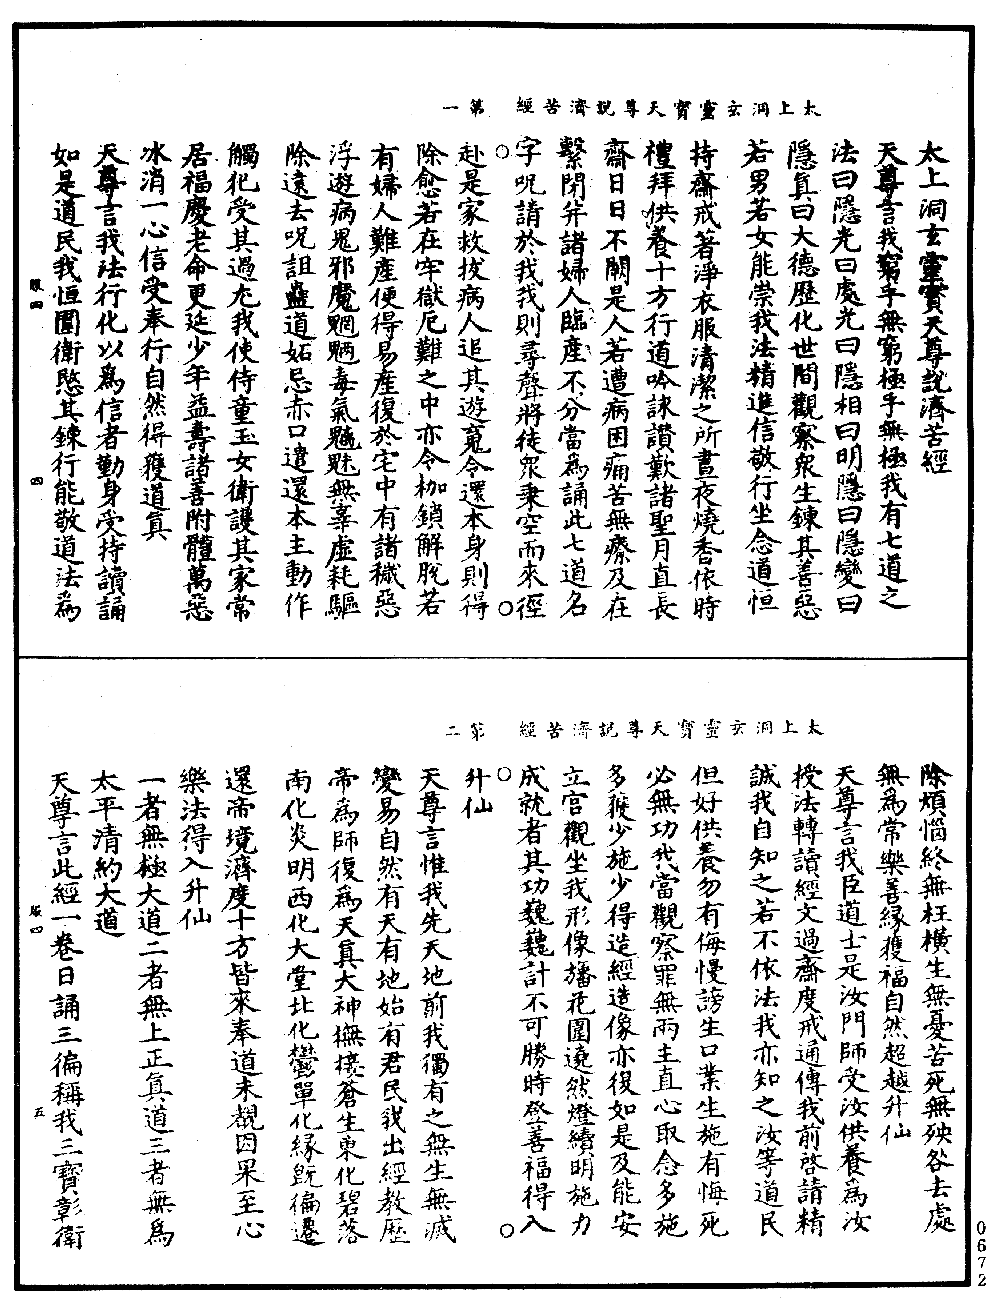 太上洞玄靈寶天尊說濟苦經　第一
太上洞玄靈寶天尊說濟苦經
天尊言我窮乎無窮極乎無極我有七道之
法曰隱光曰處光曰隱相曰明隱曰隱變曰
隱真曰大德歷化世間觀察衆生鍊其善惡
若男若女能崇我法精進信敬行坐念道恒
持齋戒著淨衣服清潔之所晝夜燒香依時
禮拜供養十方行道吟詠讚歎諸聖月直長
齋日日不闕是人若遭病困痛苦無療及在
繫閉并諸婦人臨產不分當為誦此七道名
字呪請於我我則尋聲將徒衆乗空而來徑
赴是家救拔病人追其遊䰟令還本身則得
除愈若在牢獄厄難之中亦令枷鎖解脫若
有婦人難產便得易產復於宅中有諸穢惡
浮遊病鬼邪魔魍魎毒氣魑魅無辜虛耗驅
除遠去呪詛蠱道妬忌赤口遣還本主動作
觸化受其過尤我使侍童玉女衛護其家常
居福慶老命更延少年益壽諸善附體萬惡
冰消一心信受奉行自然得獲道真
天尊言我法行化以為信者勤身受持讀誦
如是道民我恒圍衛愍其鍊行能敬道法為
服四　四
太上洞玄靈寶天尊說濟苦經　第二
除煩惱終無枉橫生無憂苦死無殃咎去處
無為常樂善緣獲福自然超越升仙
天尊言我臣道士是汝門師受汝供養為汝
授法轉讀經文過齋度戒通傳我前啓請精
誠我自知之若不依法我亦知之汝等道民
但好供養勿有侮慢謗生口業生施有悔死
必無功我當觀察罪無兩主直心取念多施
多獲少施少得造經造像亦復如是及能安
立宮觀坐我形像旛花圍遶然燈續明施力
成就者其功魏魏計不可勝時登善福得入
升仙
天尊言惟我先天地前我獨有之無生無滅
變易自然有天有地始有君民我出經教歷
帝為師復為天真大神撫接蒼生東化碧落
南化炎明西化大堂北化鬱單化緣旣徧遷
還帝境濟度十方皆來奉道末覩因果至心
樂法得入升仙
一者無極大道二者無上正真道三者無為
太平清約大道
天尊言此經一卷日誦三徧稱我三寶彰衛
服四　五
0672